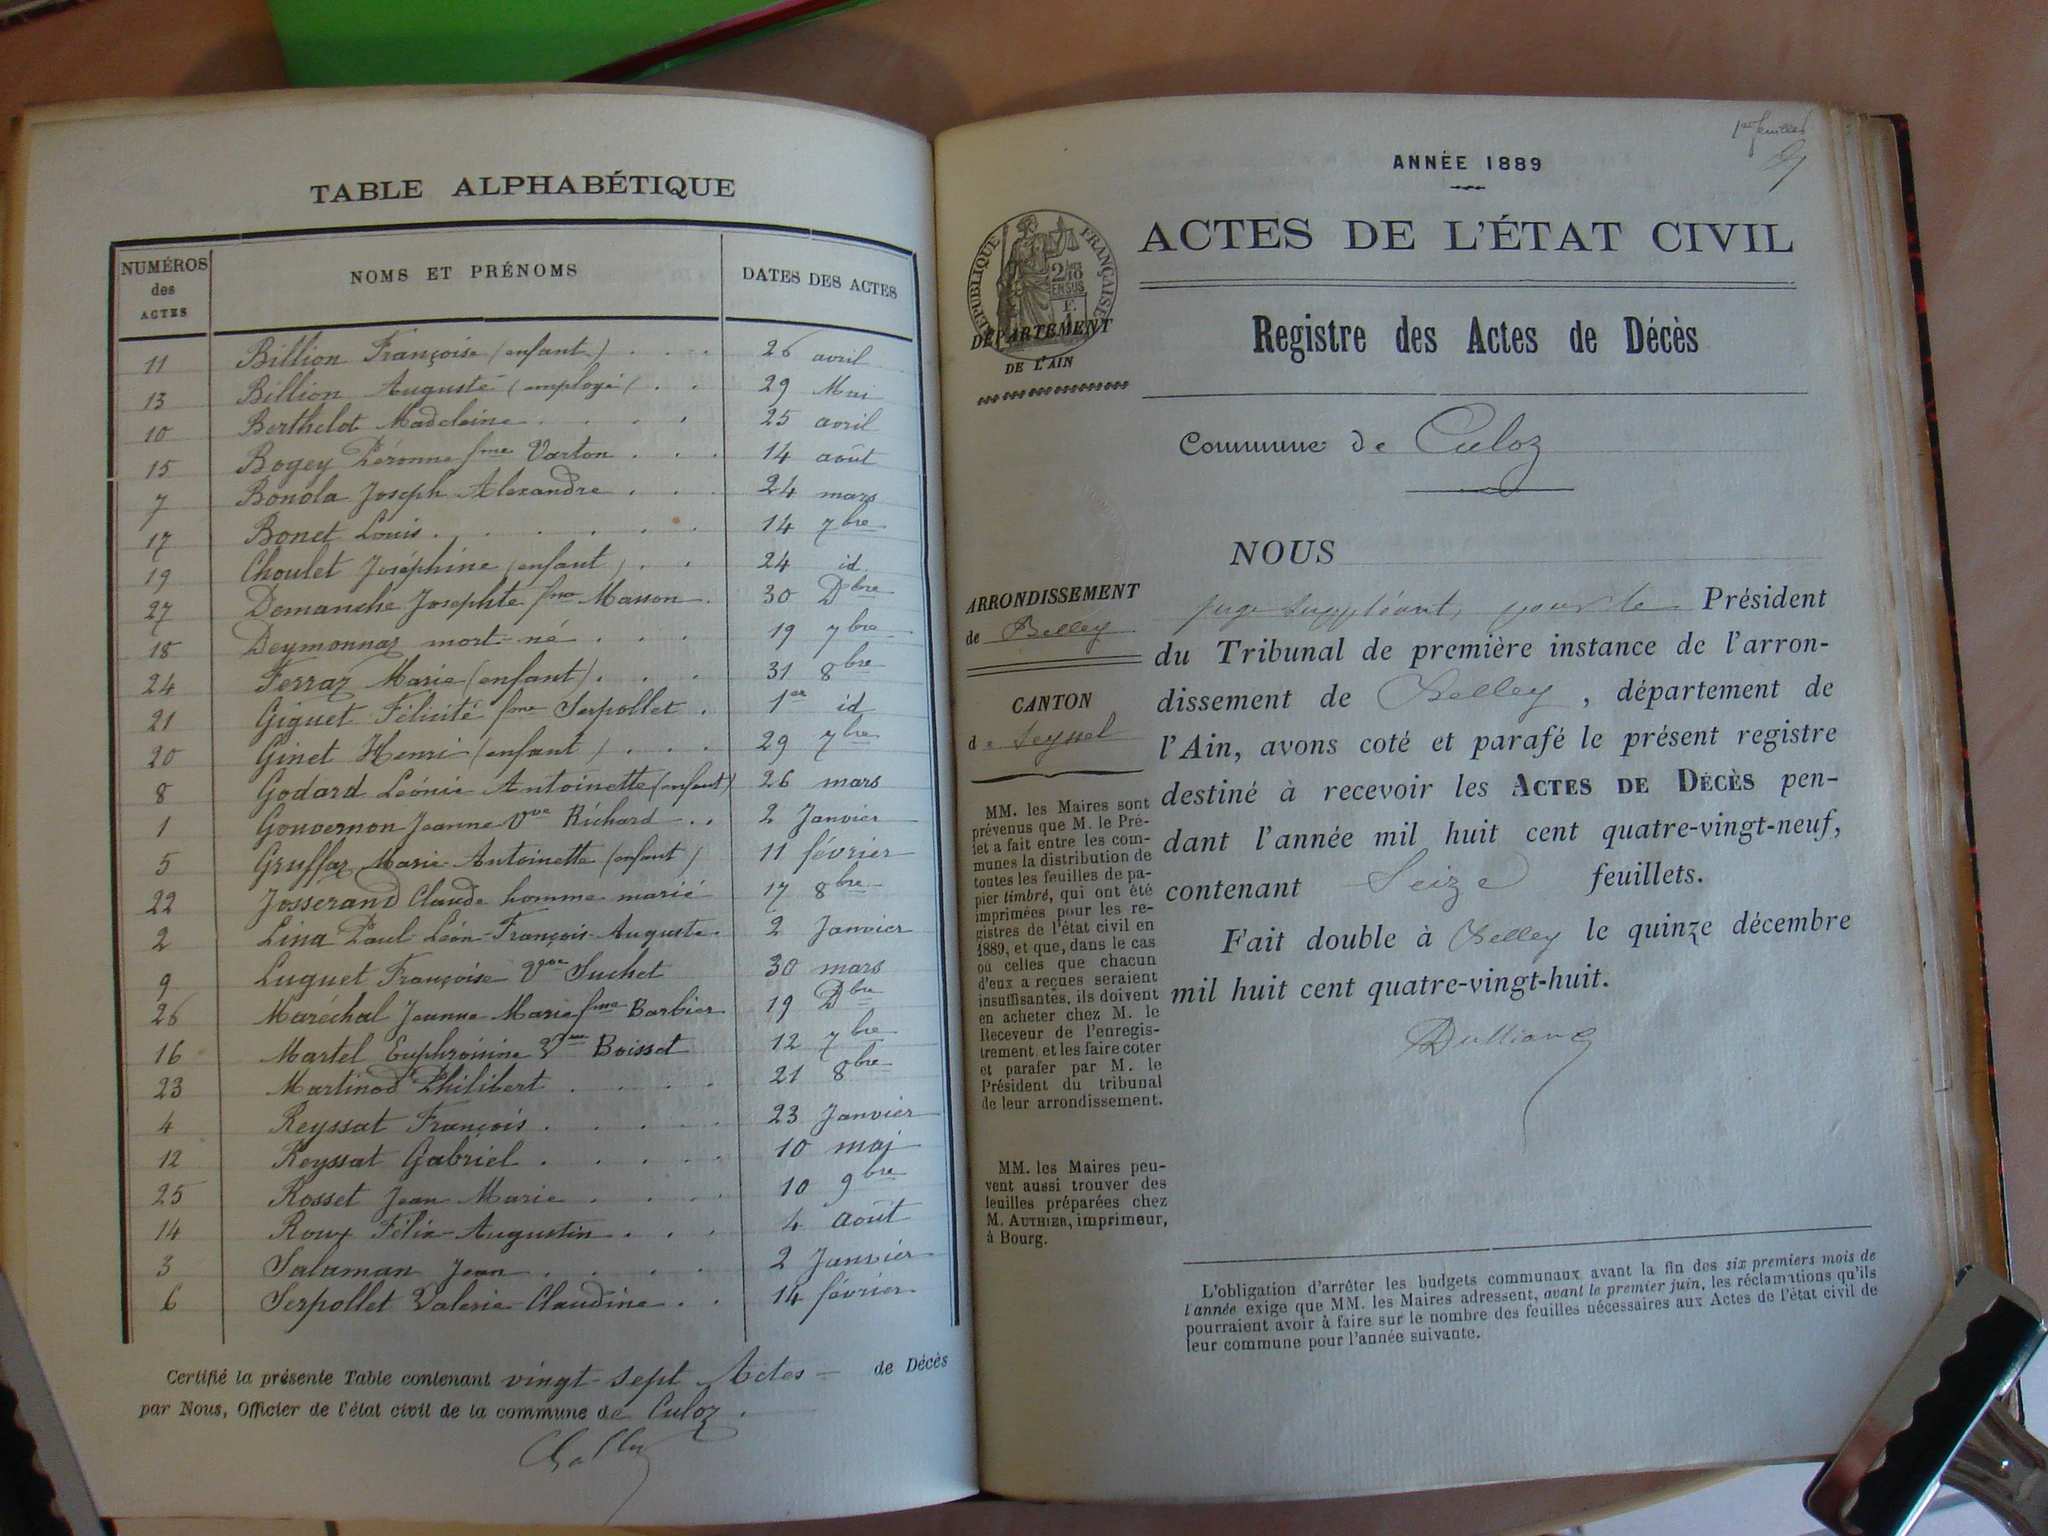 TABLE ALPHABÉTIQUE
NUMÉROS des ACTES
NOMS ET PRÉNOMS
DATES DES ACTES
11 Billion Françoise (enfant) 26 avril
13 Billion Auguste (employé) 29 Mai
10 Berthelot Madeleine 25 avril
15 Bogey Péronne fme Varton 14 août
7 Bonola Joseph Alexandre 24 mars
17 Bonet Louis 14 7bre
19 Choulet Joséphine (enfant) 24 id
27 Demanche Josephte fme Masson 30 Dbre
18 Deymonnaz mort-né 19 7bre
24 Ferraz Marie (enfant) 31 8bre
21 Giguet Félicité fme Serpollet 1er id
20 Ginet Henri (enfant) 29 7bre
8 Godard Léonie Antoinette (enfant) 26 mars
1 Gouvernon Jeanne Vve Richard 2 Janvier
5 Gruffaz Marie-Antoinette (enfant) 11 février
22 Josserand Claude homme marié 17 8bre
2 Lina Paul-Léon-François-Auguste 2 Janvier
9 Luguet Françoise Vve Suchet 30 mars
26 Maréchal Jeanne Marie fme Barbier 19 Dbre
16 Martel Euphrosine Vve Boisset 12 7bre
23 Martinod Philibert 21 8bre
4 Reyssat François 23 Janvier
12 Reyssat Gabriel 10 mai
25 Rosset Jean Marie 10 9bre
14 Roux Félix-Augustin 4 août
3 Salaman Jean 2 Janvier
6 Serpollet Valerie Claudine 14 février
Certifié la présente Table contenant vingt-sept Actes de Décès
par Nous, Officier de l'état civil de la commune de Culoz.
ANNÉE 1889
ACTES DE L'ÉTAT CIVIL
RÉPUBLIQUE FRANÇAISE
DÉPARTEMENT
DE L'AIN
Registre des Actes de Décès
Commune de Culoz
ARRONDISSEMENT
de Belley
CANTON
de Seyssel
MM. les Maires sont
prévenus que M. le Pré-
fet a fait entre les com-
munes la distribution de
toutes les feuilles de pa-
pier timbré, qui ont été
imprimées pour les re-
gistres de l'état civil en
1889, et que, dans le cas
où celles que chacun
d'eux a reçues seraient
insuffisantes, ils doivent
en acheter chez M. le
Receveur de l'enregis-
trement, et les faire coter
et parafer par M. le
Président du tribunal
de leur arrondissement.
MM. les Maires peu-
vent aussi trouver des
feuilles préparées chez
M. AUTHIER, imprimeur,
à Bourg.
NOUS
juge suppléant, pour le Président
du Tribunal de première instance de l'arron-
dissement de Belley, département de
l'Ain, avons coté et parafé le présent registre
destiné à recevoir les ACTES DE DÉCÈS pen-
dant l'année mil huit cent quatre-vingt-neuf,
contenant Seize feuillets.
Fait double à Belley le quinze décembre
mil huit cent quatre-vingt-huit.
L'obligation d'arrêter les budgets communaux avant la fin des six premiers mois de
l'année exige que MM. les Maires adressent, avant le premier juin, les réclamations qu'ils
pourraient avoir à faire sur le nombre des feuilles nécessaires aux Actes de l'état civil de
leur commune pour l'année suivante.